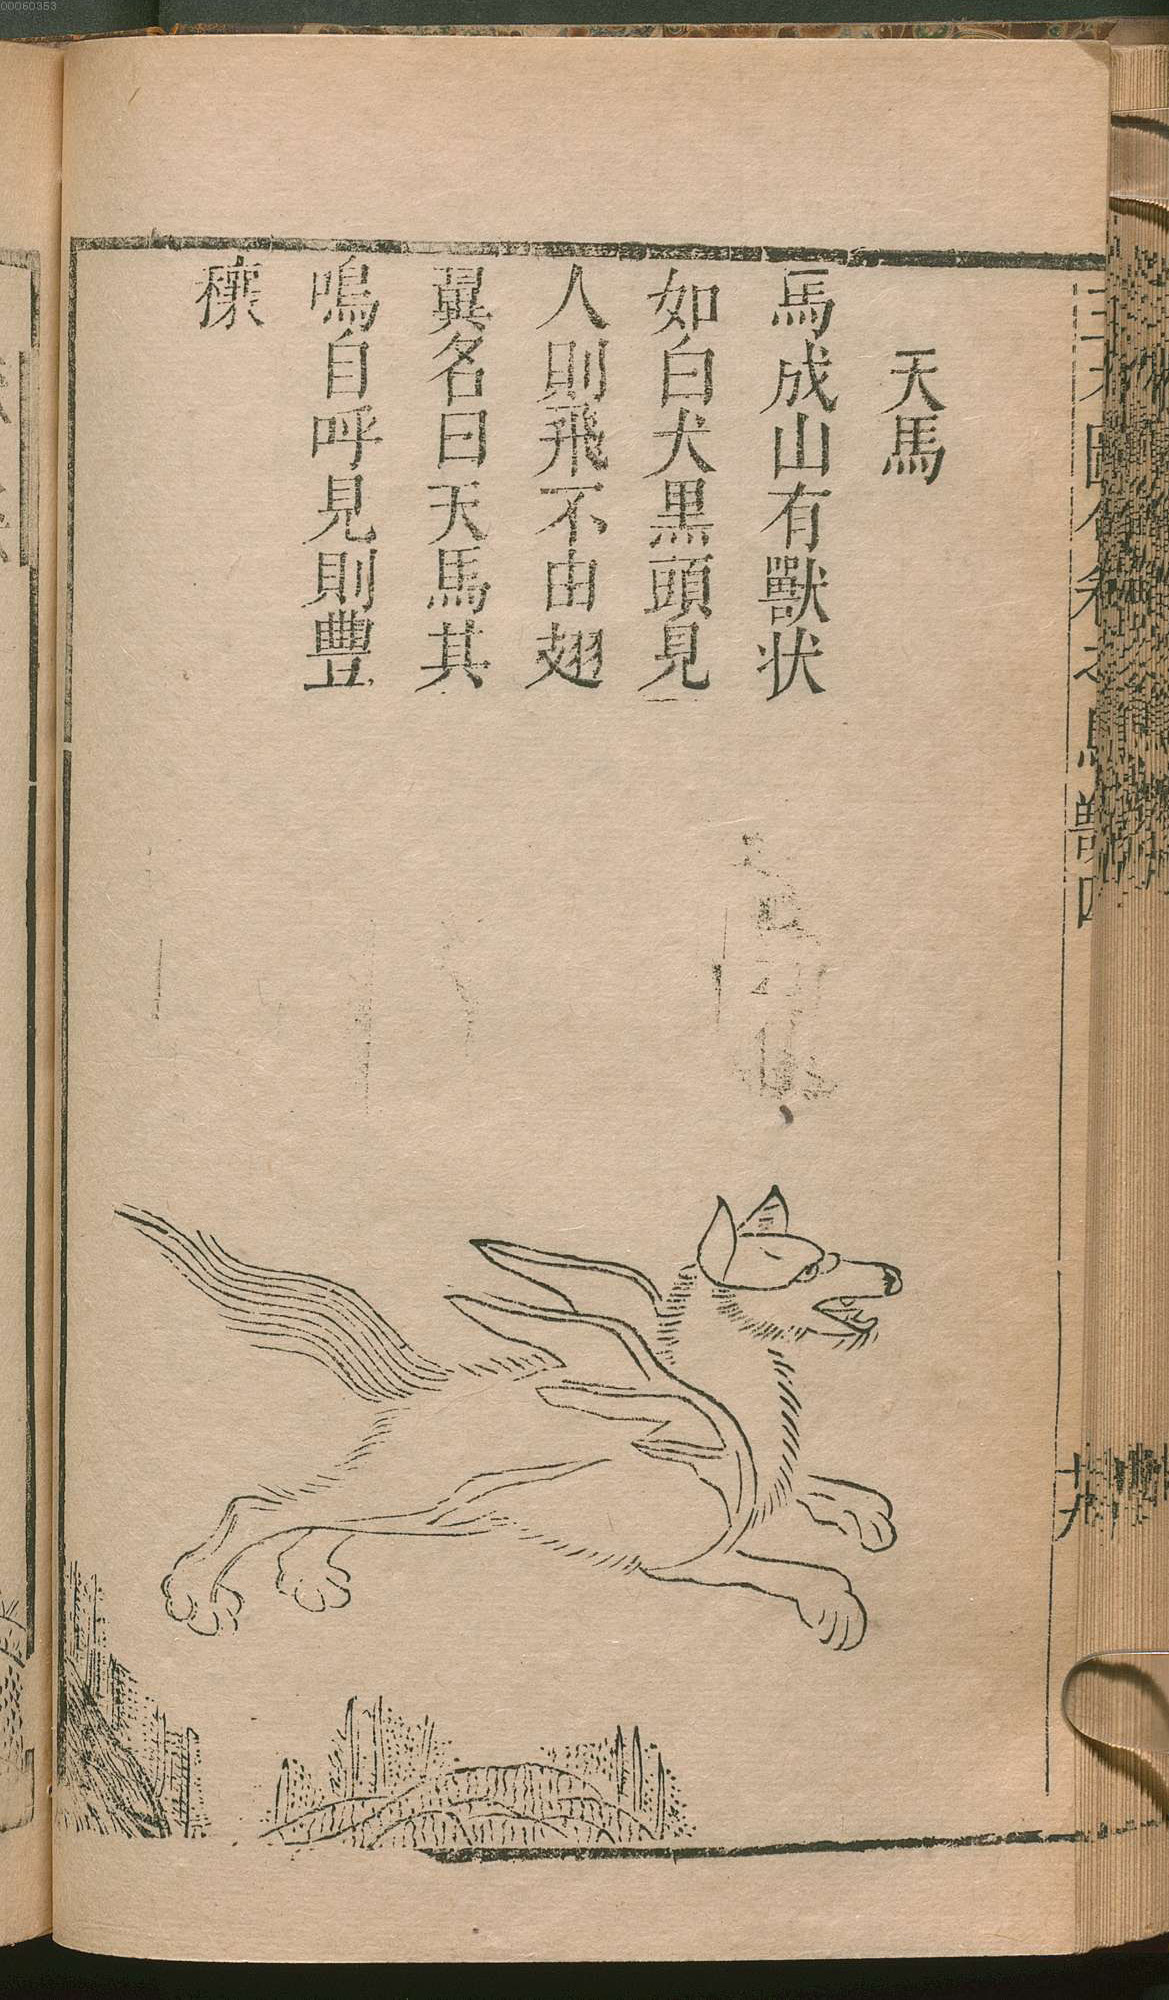 天馬
馬成山有獸状
如白犬黒頭見
人則飛不由翅
翼名曰天馬其
鳴自呼見則豐
穰
00060353